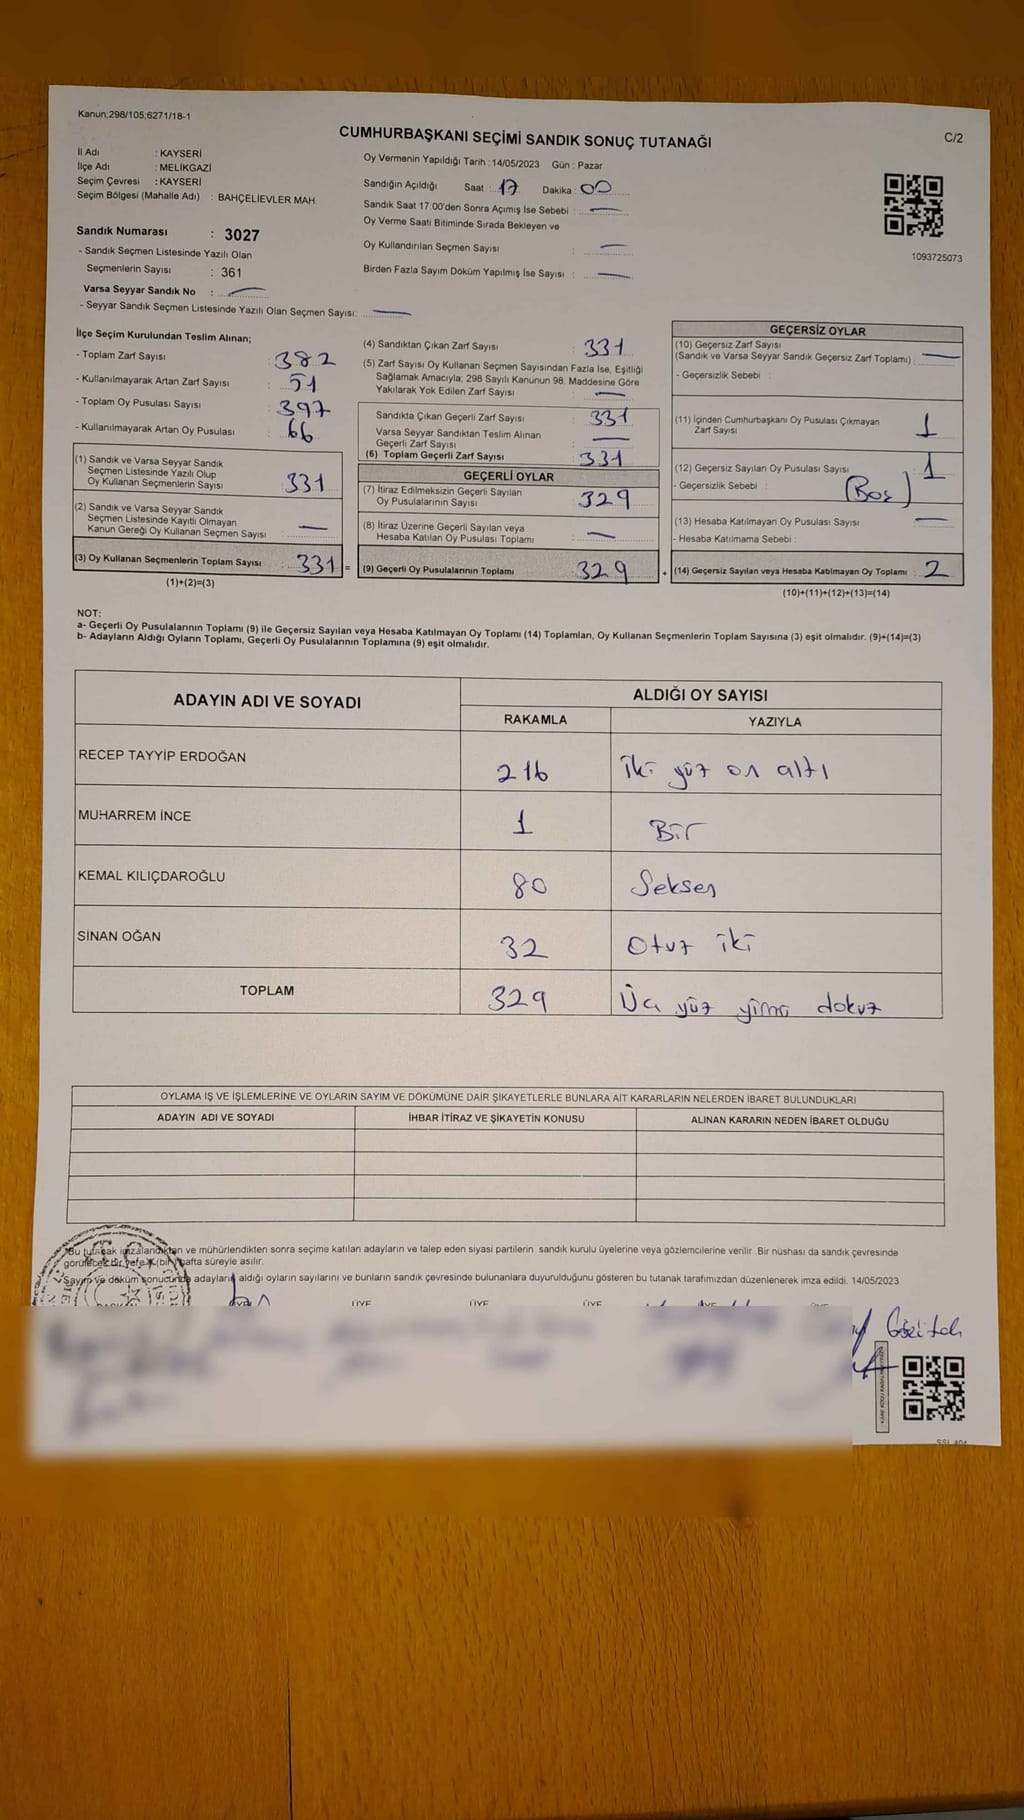 Kanun;298/105;6271/18-1
C/2
CUMHURBAŞKANI SEÇİMİ SANDIK SONUÇ TUTANAĞI
İl Adı : KAYSERİ
İlçe Adı : MELİKGAZİ
Seçim Çevresi : KAYSERİ
Seçim Bölgesi (Mahalle Adı) : BAHÇELİEVLER MAH.
Sandık Numarası : 3027
- Sandık Seçmen Listesinde Yazılı Olan
Seçmenlerin Sayısı : 361
Varsa Seyyar Sandık No : —
- Seyyar Sandık Seçmen Listesinde Yazılı Olan Seçmen Sayısı: —
Oy Vermenin Yapıldığı Tarih :14/05/2023 Gün : Pazar
Sandığın Açıldığı Saat : 17 Dakika : 00
Sandık Saat 17:00'den Sonra Açımış İse Sebebi : —
Oy Verme Saati Bitiminde Sırada Bekleyen ve
Oy Kullandırılan Seçmen Sayısı : —
Birden Fazla Sayım Döküm Yapılmış İse Sayısı : —
1093725073
İlçe Seçim Kurulundan Teslim Alınan;
- Toplam Zarf Sayısı : 382
- Kullanılmayarak Artan Zarf Sayısı : 51
- Toplam Oy Pusulası Sayısı : 397
- Kullanılmayarak Artan Oy Pusulası : 66
(1) Sandık ve Varsa Seyyar Sandık
Seçmen Listesinde Yazılı Olup
Oy Kullanan Seçmenlerin Sayısı : 331
(2) Sandık ve Varsa Seyyar Sandık
Seçmen Listesinde Kayıtlı Olmayan
Kanun Gereği Oy Kullanan Seçmen Sayısı : —
(3) Oy Kullanan Seçmenlerin Toplam Sayısı : 331 =
(1)+(2)=(3)
(4) Sandıktan Çıkan Zarf Sayısı : 331
(5) Zarf Sayısı Oy Kullanan Seçmen Sayısından Fazla İse, Eşitliği
Sağlamak Amacıyla; 298 Sayılı Kanunun 98. Maddesine Göre
Yakılarak Yok Edilen Zarf Sayısı : —
Sandıkta Çıkan Geçerli Zarf Sayısı : 331
Varsa Seyyar Sandıktan Teslim Alınan
Geçerli Zarf Sayısı : —
(6) Toplam Geçerli Zarf Sayısı : 331
GEÇERLİ OYLAR
(7) İtiraz Edilmeksizin Geçerli Sayılan
Oy Pusulalarının Sayısı : 329
(8) İtiraz Üzerine Geçerli Sayılan veya
Hesaba Katılan Oy Pusulası Toplamı : —
(9) Geçerli Oy Pusulalarının Toplamı : 329 +
GEÇERSİZ OYLAR
(10) Geçersiz Zarf Sayısı
(Sandık ve Varsa Seyyar Sandık Geçersiz Zarf Toplamı) : —
- Geçersizlik Sebebi :
(11) İçinden Cumhurbaşkanı Oy Pusulası Çıkmayan
Zarf Sayısı : 1
(12) Geçersiz Sayılan Oy Pusulası Sayısı : 1
- Geçersizlik Sebebi : (Boş)
(13) Hesaba Katılmayan Oy Pusulası Sayısı : —
- Hesaba Katılmama Sebebi :
(14) Geçersiz Sayılan veya Hesaba Katılmayan Oy Toplamı : 2
(10)+(11)+(12)+(13)=(14)
NOT:
a- Geçerli Oy Pusulalarının Toplamı (9) ile Geçersiz Sayılan veya Hesaba Katılmayan Oy Toplamı (14) Toplamları, Oy Kullanan Seçmenlerin Toplam Sayısına (3) eşit olmalıdır. (9)+(14)=(3)
b- Adayların Aldığı Oyların Toplamı, Geçerli Oy Pusulalarının Toplamına (9) eşit olmalıdır.
ADAYIN ADI VE SOYADI ALDIĞI OY SAYISI
RAKAMLA YAZIYLA
RECEP TAYYİP ERDOĞAN 216 İki yüz on altı
MUHARREM İNCE 1 Bir
KEMAL KILIÇDAROĞLU 80 Seksen
SİNAN OĞAN 32 Otuz iki
TOPLAM 329 Üç yüz yirmi dokuz
OYLAMA İŞ VE İŞLEMLERİNE VE OYLARIN SAYIM VE DÖKÜMÜNE DAİR ŞİKAYETLERLE BUNLARA AİT KARARLARIN NELERDEN İBARET BULUNDUKLARI
ADAYIN ADI VE SOYADI İHBAR İTİRAZ VE ŞİKAYETİN KONUSU ALINAN KARARIN NEDEN İBARET OLDUĞU
Bu tutanak imzalandıktan ve mühürlendikten sonra seçime katılan adayların ve talep eden siyasi partilerin sandık kurulu üyelerine veya gözlemcilerine verilir .Bir nüshası da sandık çevresinde
görülecek bir yere (bir) hafta süreyle asılır.
Sayım ve döküm sonucunda adayların aldığı oyların sayılarını ve bunların sandık çevresinde bulunanlara duyurulduğunu gösteren bu tutanak tarafımızdan düzenlenerek imza edildi. 14/05/2023
ÜYE ÜYE ÜYE